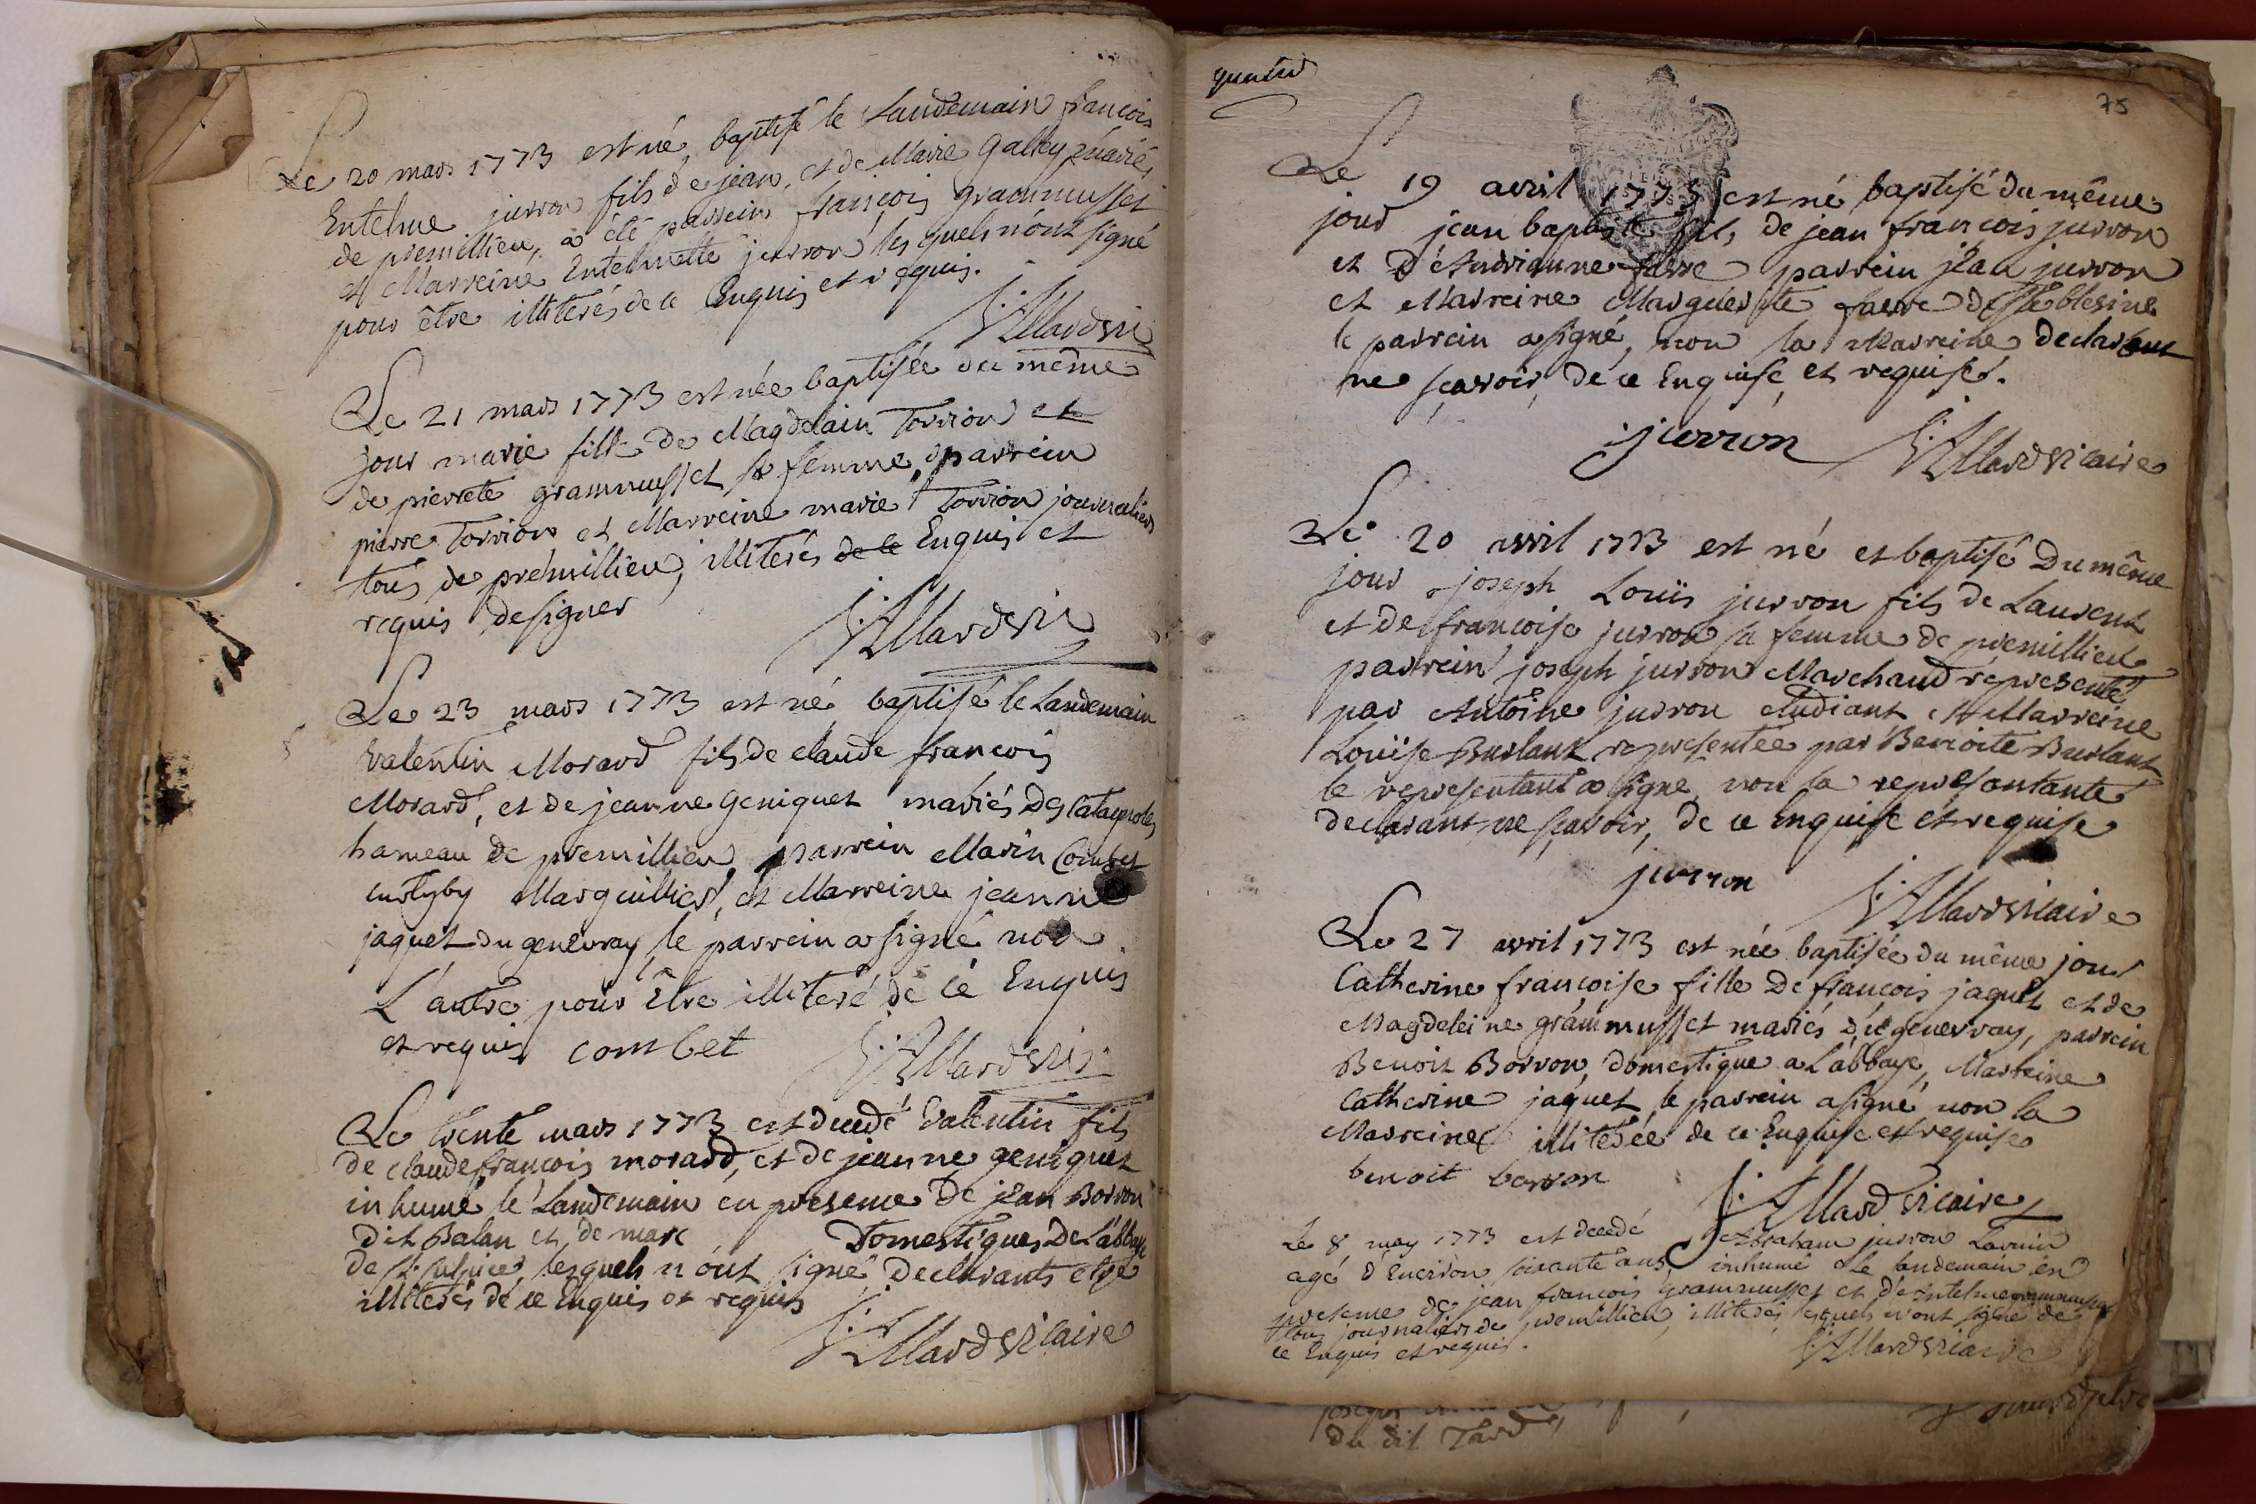 Le 20 mars 1773 est né, baptisé le landemain françois
Entelme jurron fils de jean, et de Marie Galley mariés
de premillieu, a été parrein françois grammusset
et Marreine Entelmette jurron les quels n'ont signé
pour être illiterés de ce Enquis et requis.
J: Allard Vic
Le 21 mars 1773 est née baptisée du même
jour marie fille de Magdelain Torrion et
de pierrete grammusset sa femme, parrein
pierre Torrion et Marreine marie Torrion journaliers
tous de premillieu, illiterés de ce Enquis et
requis de signer
J: Allard Vic
Le 23 mars 1773 est né baptisé le landemain
Valentin Morard fils de claude françois
Morard, et de jeanne Geniquet mariés des
hameau de premillieu, parrein Marin Combet
Marguillier, et Marreine jeanne
jaquet du genevray, le parrein a signé non
L'autre pour Etre illiteré de ce Enquis
et requis combet
J: Allard Vic:
Le trente mars 1773 est decedé Valentin fils
de claude françois morard, et de jeanne geniquet
inhumé le landemain en presence de jean Borron
dit Balan et de marc Domestiques de L'abbaye
de st. sulpice, lesquels n'ont signé declarants etre
illiterés de ce Enquis et requis
J: Allard Vicaire
75
Le 19 avril 1773 est né baptisé du même
jour jean baptiste fils de jean françois jurron
et d'Andrianne faure parrein jean jurron
et Marreine Marguerite faure
le parrein a signé, non la Marreine declarant
ne sçavoir, de ce Enquise et requise.
jurron J: Allard Vicaire
Le 20 avril 1773 est né et baptisé Du même
jour joseph Louïs jurron fils de Laurent
et de françoise jurron sa femme de premillieu
parrein joseph jurron Marchand représenté
par Antoine jurron etudiant et Marreine
Louïse Burlant representée par Benoite Burlant
le representant a signé non la représantante
declarant ne sçavoir, de ce Enquise et requise
jurron
J: Allard Vicaire
Le 27 avril 1773 est née baptisée du même jour
Catherine françoise fille de françois jaquet et de
Magdeleine grammusset mariés du genevray, parrein
Benoit Borron, domestique a L'abbaye, Marreine
Catherine jaquet, le parrein a signé non la
Marreine illiterée de ce Enquise et requise
benoit borron
J: Allard Vicaire
Le 8 may 1773 est decedé Abraham jurron
agé d'Environ soixante ans, inhumé le landemain en
presence de jean françois grammusset et d'Entelme grammusset
tous journaliers de premillieu, illiterés lesquels n'ont signé de
ce Enquis et requis.
J: Allard Vicaire
du dit